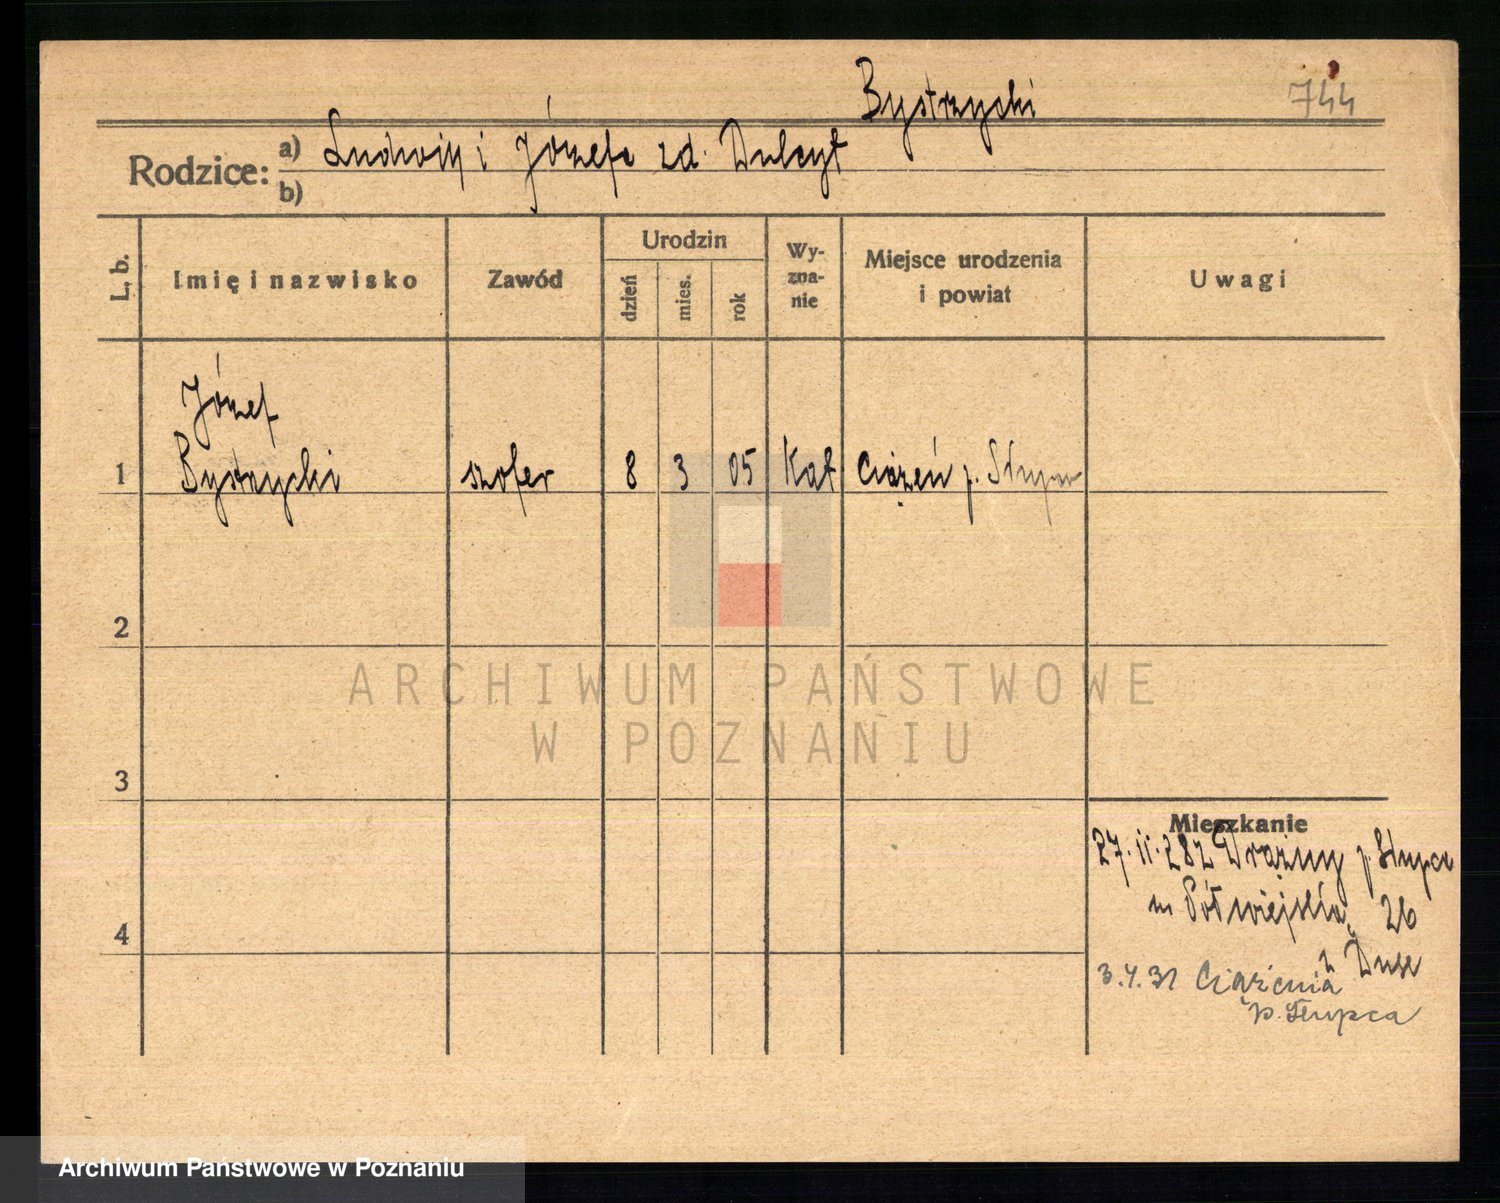 Bystrzycki
744
Rodzice: a) Ludwik i Józefa zd. Dulczyt
b)
L. b.
Imię i nazwisko
Zawód
Urodzin
dzień
mies.
rok
Wy-
zna-
nie
Miejsce urodzenia
i powiat
Uwagi
Józef
1 Bystrzycki szofer 8 3 05 Kat Ciążeń p. Słupca
2
3
4
Mieszkanie
27. 11. 28 z Drążny p. Słupca
m Półwiejska 26
z Duse
3.4.31 Ciążenia
p. Słupca
ARCHIWUM PAŃSTWOWE
W POZNANIU
Archiwum Państwowe w Poznaniu